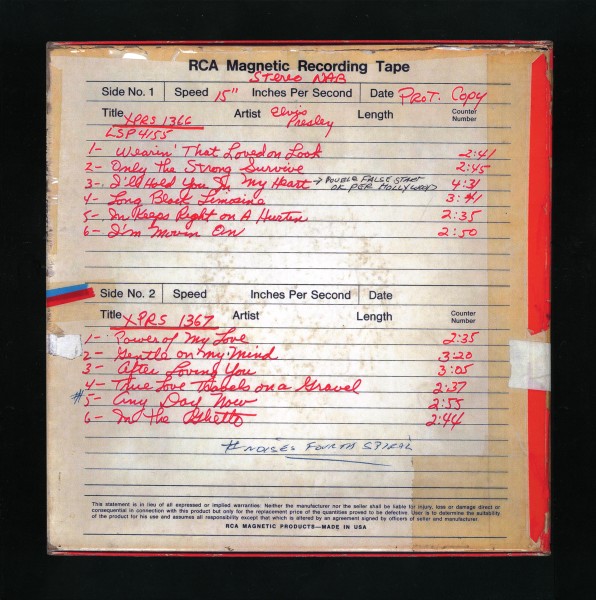 RCA Magnetic Recording Tape
Stereo NAB
Side No. 1 Speed 15" Inches Per Second Date Prot. Copy
Title XPRS 1366 Artist Elvis Presley Length Counter Number
LSP 4155
1- Wearin' That Loved on Look 2:41
2- Only the Strong Survive 2:45
3- I'll Hold You In My Heart → DOUBLE FALSE START OK PER HOLLYWOOD 4:31
4- Long Black Limosine 3:41
5- In Keeps Right on A Hurtin 2:35
6- I'm Movin On 2:50
Side No. 2 Speed Inches Per Second Date
Title XPRS 1367 Artist Length Counter Number
1- Power of My Love 2:35
2- Gentle on My Mind 3:20
3- After Loving You 3:05
4- True Love Travels on a Gravel 2:37
# 5- Any Day Now 2:55
6- In the Ghetto 2:44
# NOISES FOURTH SPIRAL
This statement is in lieu of all expressed or implied warranties: Neither the manufacturer nor the seller shall be liable for injury, loss or damage direct or
consequential in connection with this product but only for the replacement price of the quantities proved to be defective. User is to determine the suitability
of the product for his use and assumes all responsibility except that which is altered by an agreement signed by officers of seller and manufacturer.
RCA MAGNETIC PRODUCTS—MADE IN USA